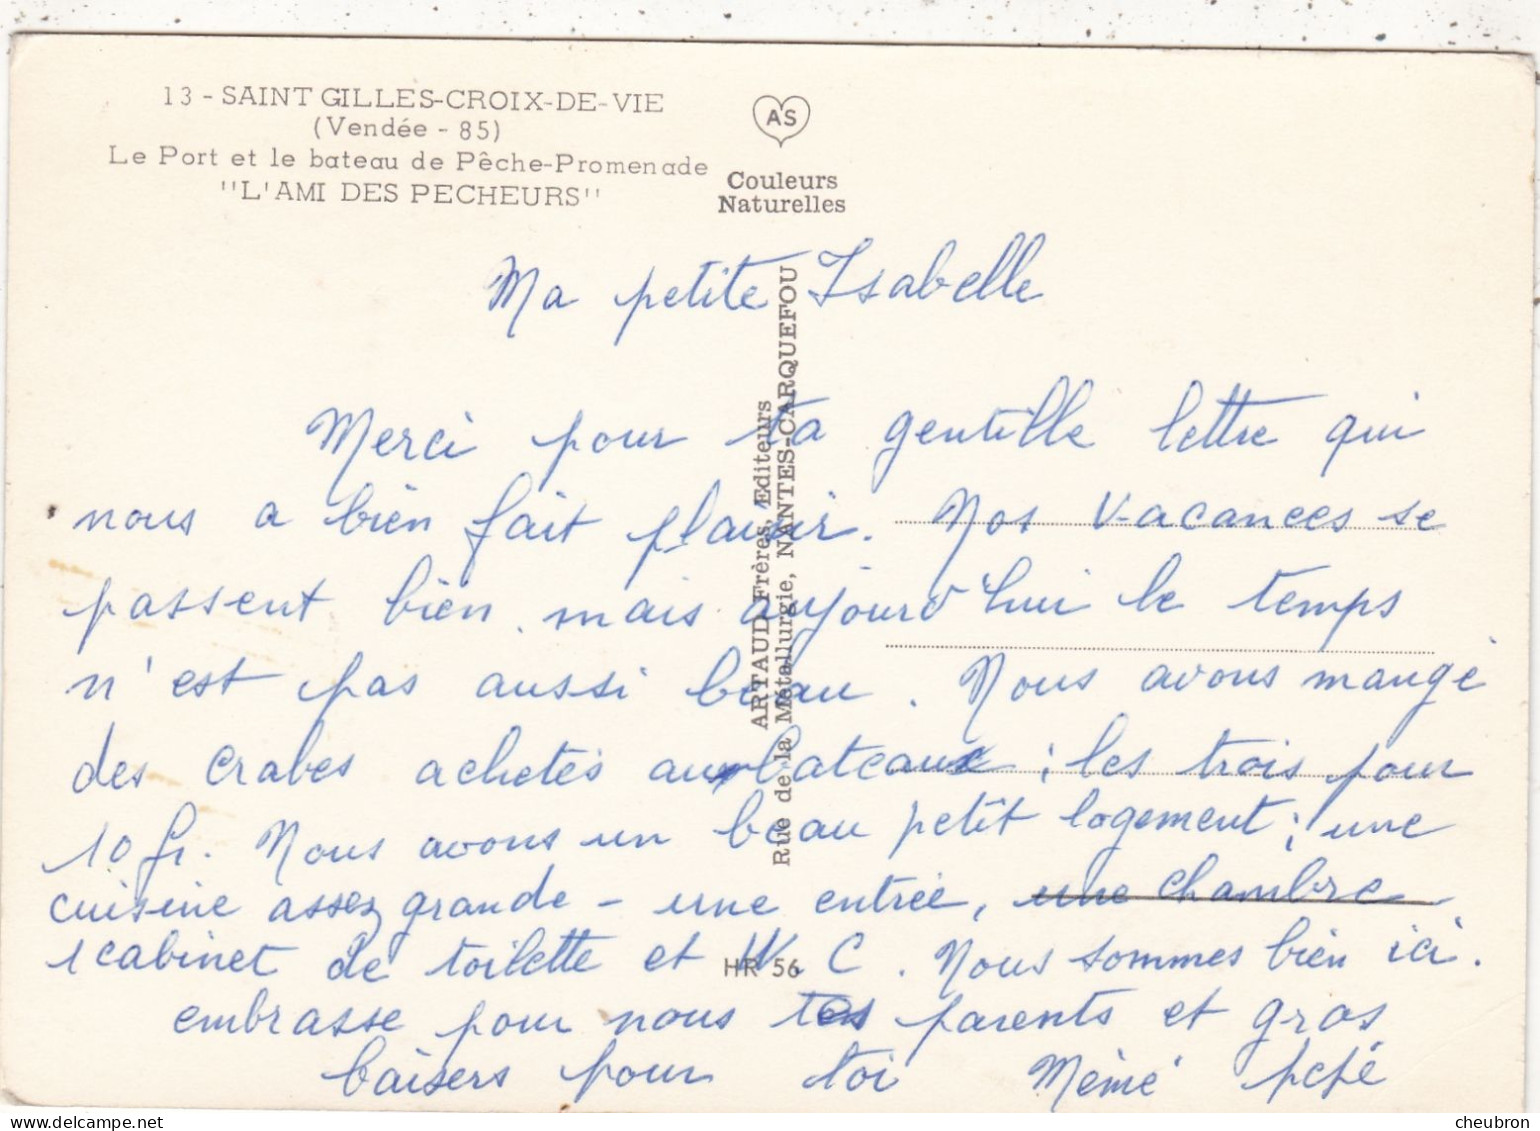 13 - SAINT GILLES-CROIX-DE-VIE
(Vendée - 85)
Le Port et le bateau de Pêche-Promenade
"L'AMI DES PECHEURS"
AS
Couleurs
Naturelles
ARTAUD Frères, Editeurs
Rue de la Métallurgie, NANTES-CARQUEFOU
Ma petite Isabelle
Merci pour ta gentille lettre qui
nous a bien fait plaisir. Nos vacances se
passent bien, mais aujourd'hui le temps
n'est pas aussi beau. Nous avons mangé
des crabes achetés aux bateaux ; les trois pour
10 fr. Nous avons un beau petit logement ; une
cuisine assez grande - une entrée, une chambre
1 cabinet de toilette et W.C. Nous sommes bien ici.
embrasse pour nous tes parents et gros
baisers pour toi Mémé pépé
HR 56
cheubron.com